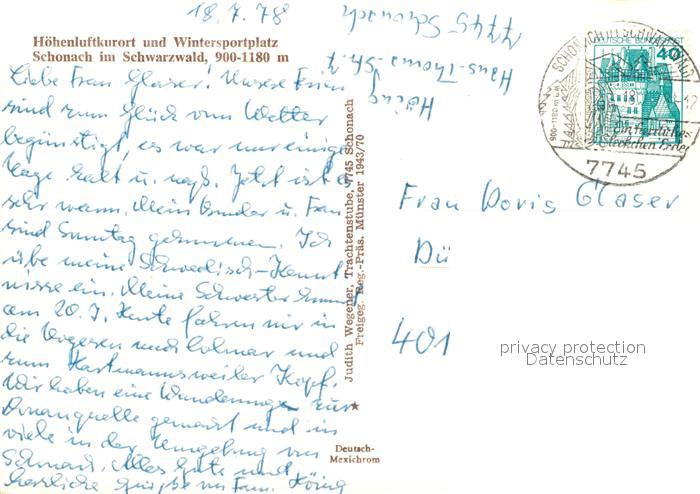 18.7.78
Höhenluftkurort und Wintersportplatz
Schonach im Schwarzwald, 900-1180 m
Liebe Frau Glaser! Unsere Ferien
sind zum Glück vom Wetter
begünstigt, es war nur einige
Tage kalt u. naß. Jetzt ist es
sehr warm. Mein Bruder u. Frau
sind Sonntag gekommen. Ich
übe meine Schwedisch-Kennt
nisse ein. Meine Schwester kommt
am 20.7. Heute fahren wir in
die Vogesen nach Colmar und
zum Hartmannsweiler Kopf.
Wir haben eine Wanderung zur
Donauquelle gemacht und
viele in der Umgebung von
Schonach. Alles Gute und
herzliche Grüße von Fam. Höing
Höing
Hans-Thoma-Str. 7
7745 Schonach
Judith Wegener, Trachtenstube, 7745 Schonach
Freigeg. Reg.-Präs. Münster 1943/70
Deutsch-
Mexichrom
DEUTSCHE BUNDESPOST
40
SCHONACH IM SCHWARZWALD
900-1180 m
Ein herrliches
Fleckchen Erde
7745
Frau Doris Glaser
Dü
401
privacy protection
Datenschutz